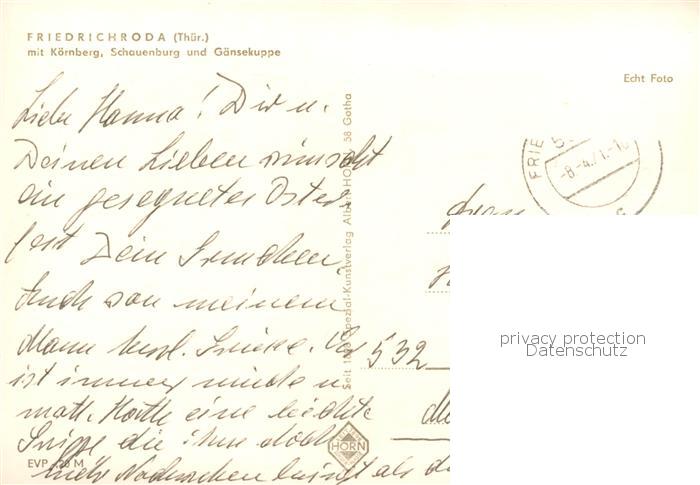 FRIEDRICHRODA (Thür.)
mit Körnberg, Schauenburg und Gänsekuppe
Echt Foto
Liebe Hanna! Dir u.
Deinen Lieben wünscht
ein gesegnetes Oster-
fest Dein Irmchen.
Auch von meinem
Mann herzl. Grüsse.
ist immer müde u.
matt. Hatte eine leichte
Grippe die ihm doch
mehr Nachwehen bringt als
Spezial-Kunstverlag Albert HORN, 58 Gotha
FRIE
-8.-4.71.-
Frau
532
HORN
EVP M
privacy protection
Datenschutz